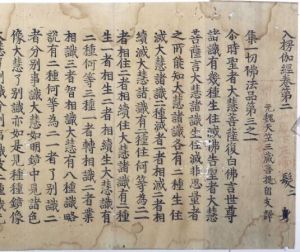 入楞伽經卷第二 髮
元魏天竺三藏菩提留支譯
集一切佛法品第三之一
尒時聖者大慧菩薩復白佛言世尊
諸識有幾種生住滅佛告聖者大慧
菩薩言大慧諸識生住滅非思量者
之所能知大慧諸識各有二種生住
滅大慧諸識二種滅者一者相滅二者相
續滅大慧諸識又二種住何等為二一
者相住二者相續住大慧諸識有二種
生一者相生二者相續生大慧識有
三種何等三種一者轉相識二者業
相識三者智相識大慧有八種識略
說有二種何等為二一者了別識二
者分別事識大慧如明鏡中見諸色
像大慧了別識亦如是見種種鏡像